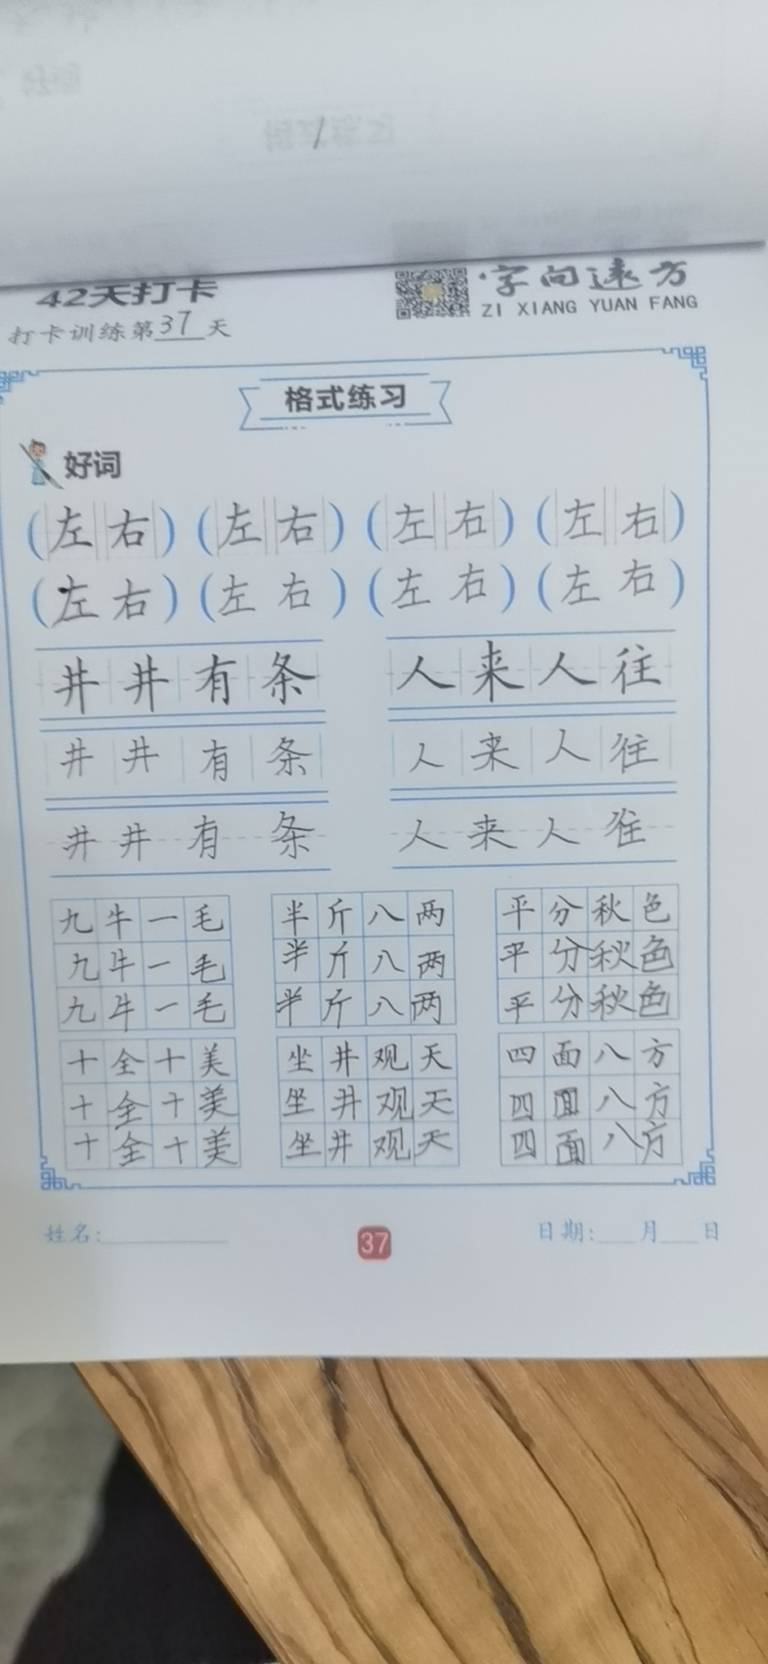 42天打卡
字向远方
ZI XIANG YUAN FANG
打卡训练第37天
格式练习
好词
(左右)(左右)(左右)(左右)
(左右)(左右)(左右)(左右)
井井有条 人来人往
井井有条 人来人往
井井有条 人来人往
九牛一毛 半斤八两 平分秋色
九牛一毛 半斤八两 平分秋色
九牛一毛 半斤八两 平分秋色
十全十美 坐井观天 四面八方
十全十美 坐井观天 四面八方
十全十美 坐井观天 四面八方
姓名: 37 日期: 月 日